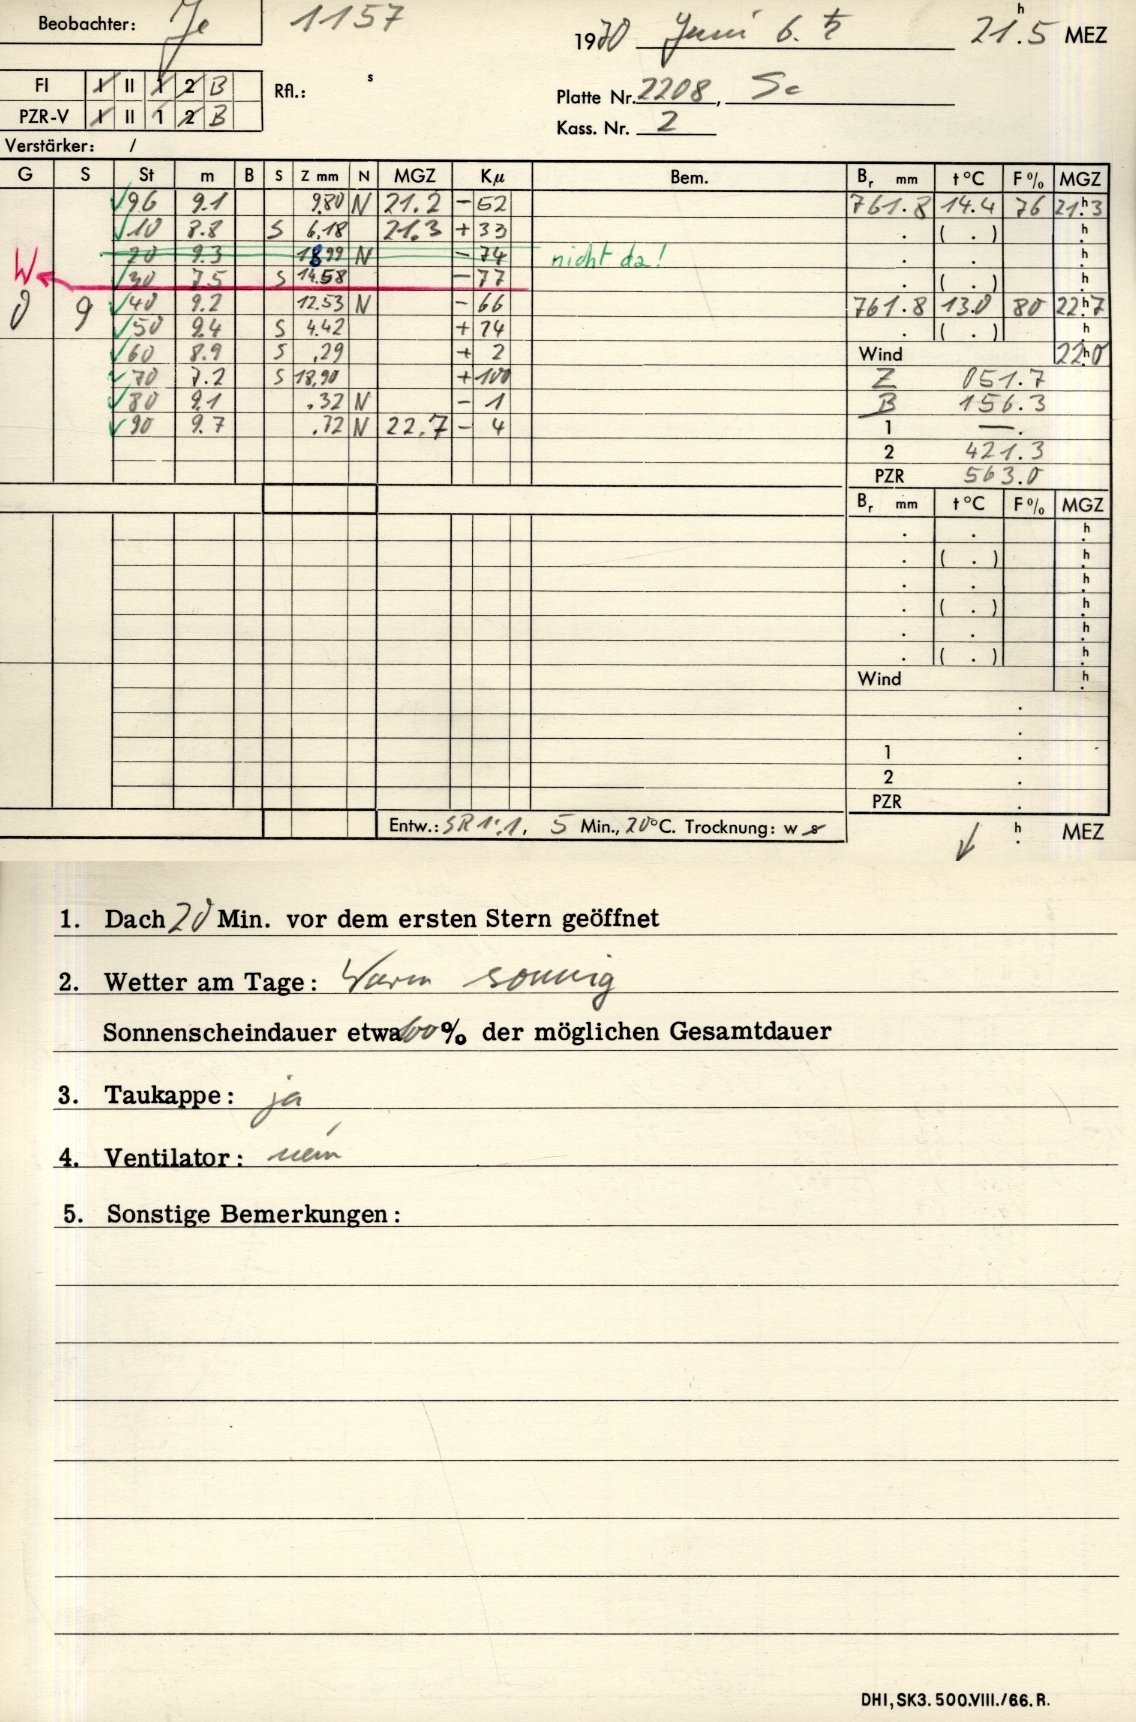 Beobachter: Je 1157
1970 Juni 6. ♄ 21h.5 MEZ
FI I II 1 2 B Rfl.: s
Platte Nr. 2208, Sc
PZR-V I II 1 2 B
Kass. Nr. 2
Verstärker: /
G S St m B S Z mm N MGZ Kμ Bem. Br mm t°C F% MGZ
96 9.1 9.80 N 21.2 - 52 761.8 14.4 76 21h.3
10 8.8 S 6.18 21.3 + 33 . ( . ) h.
20 9.3 18.99 N - 74 nicht da! . . h.
W 30 7.5 S 14.58 - 77 . ( . ) h.
0 9 40 9.2 12.53 N - 66 761.8 13.0 80 22h.7
50 9.4 S 4.42 + 24 . ( . ) h.
60 8.9 S .29 + 2 Wind 22h.0
70 7.2 S 18.90 + 100 Z 051.7
80 9.1 .32 N - 1 B 156.3
90 9.7 .72 N 22.7 - 4 1 — .
2 421.3
PZR 563.0
Br mm t°C F% MGZ
. . h.
. ( . ) h.
. . h.
. ( . ) h.
. . h.
. ( . ) h.
Wind h.
.
.
1 .
2 .
PZR .
Entw.: SR 1:1, 5 Min., 20°C. Trocknung: w s
h. MEZ
1. Dach 20 Min. vor dem ersten Stern geöffnet
2. Wetter am Tage: Warm sonnig
Sonnenscheindauer etwa 100% der möglichen Gesamtdauer
3. Taukappe: ja
4. Ventilator: nein
5. Sonstige Bemerkungen:
DHI, SK3. 500.VIII./66. R.